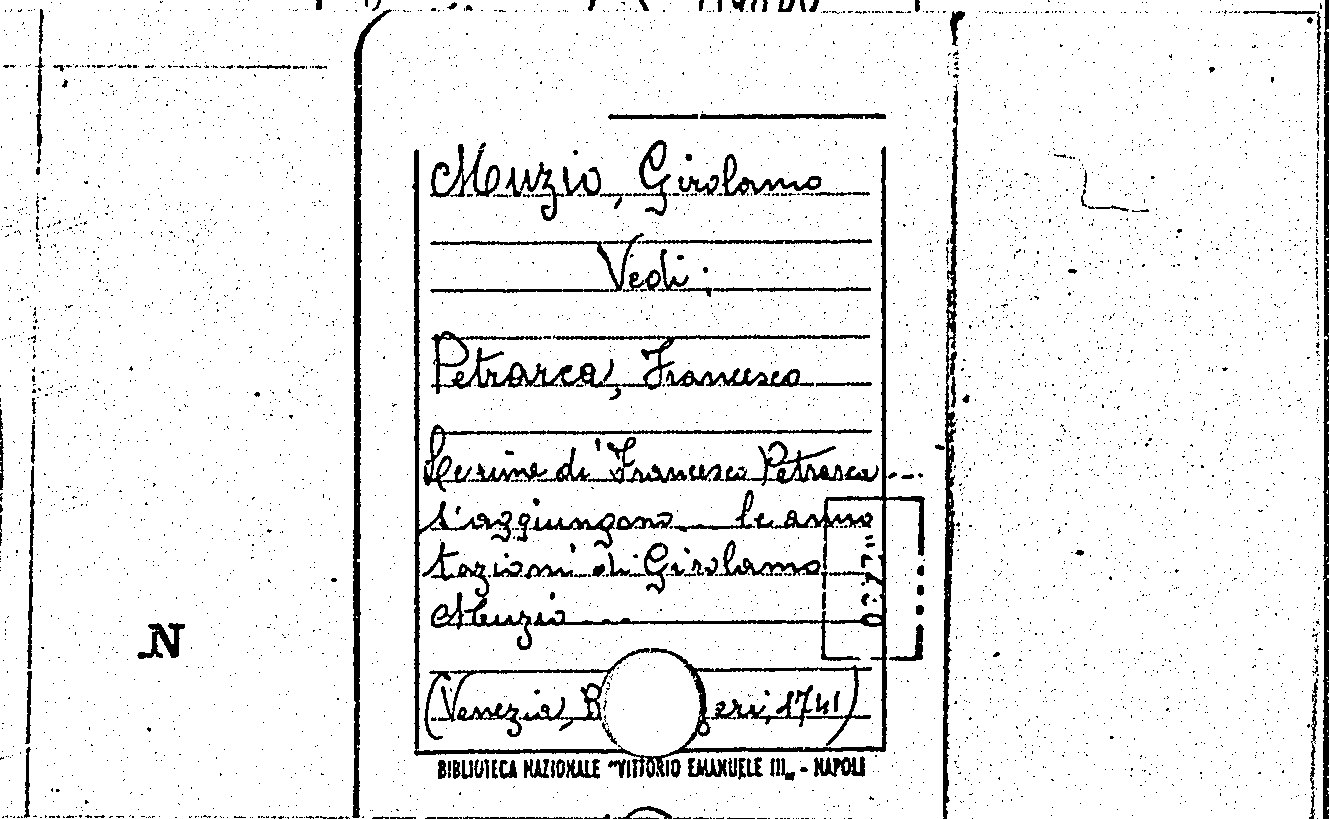 Muzio, Girolamo
Vedi:
Petrarca, Francesco
Le rime di Francesco Petrarca...
s'aggiungono... le anno
tazioni di Girolamo
Muzio...
(Venezia, B geri, 1741)
BIBLIOTECA NAZIONALE "VITTORIO EMANUELE III„ - NAPOLI
N